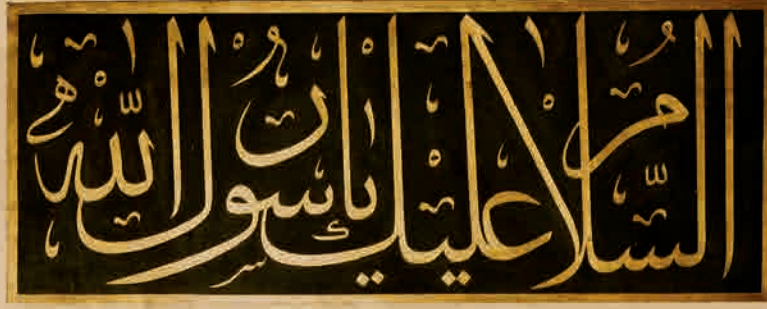 السَّلَامُ عَلَيْكَ يَا رَسُولَ اللّٰهِ